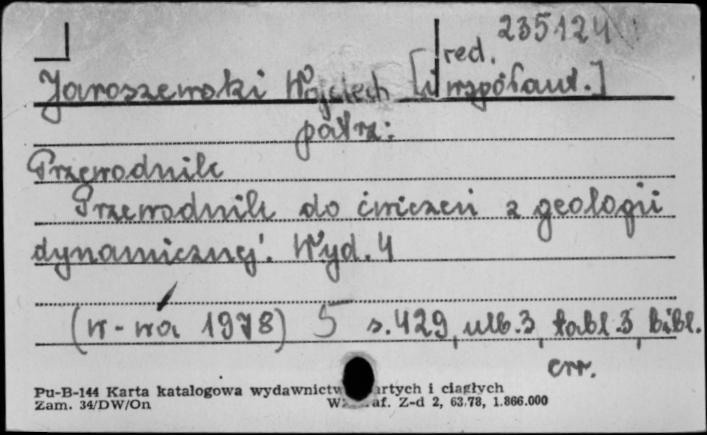 235124
red.
Jaroszewski Wojciech [i współaut.]
patrz:
Przewodnik
Przewodnik do ćwiczeń z geologii
dynamicznej. Wyd. 4
(W-wa 1978) 5 s. 429, ulb. 3, tabl. 3, bibl.
err.
Pu-B-144 Karta katalogowa wydawnictw i ciągłych
Zam. 34/DW/On Z-d 2, 63.78, 1.866.000